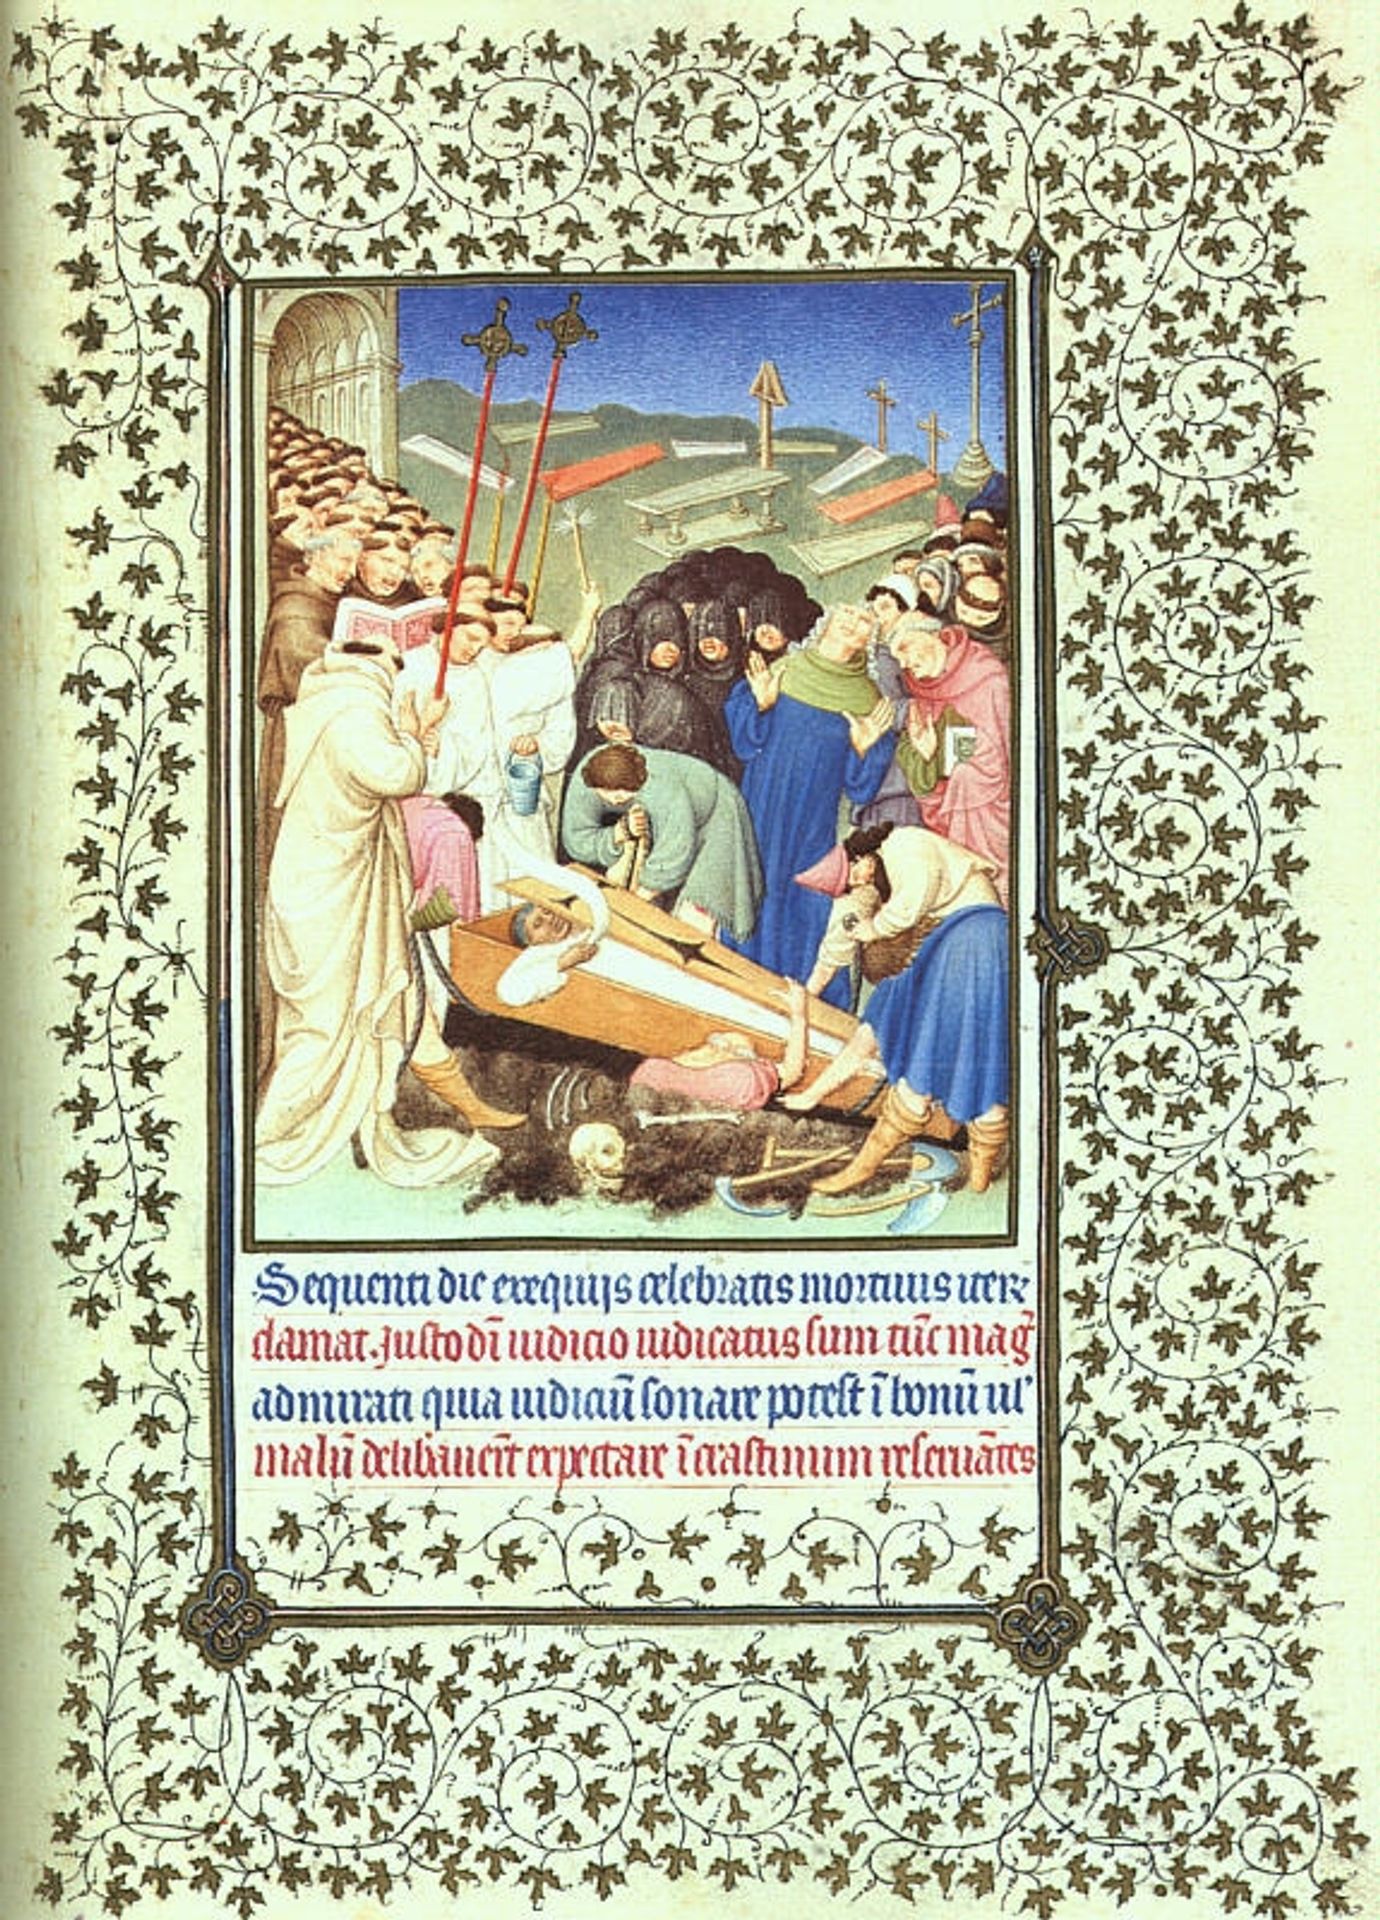 Sequenti die exequijs celebratis mortuus iter̄
clamat. Justo dī iudicio iudicatus sum tūc maḡ
admirati quia iudiciū sonare potest ī bonū ul'
malū deliba̅uer̄t expectare ī crastinum reseruātes